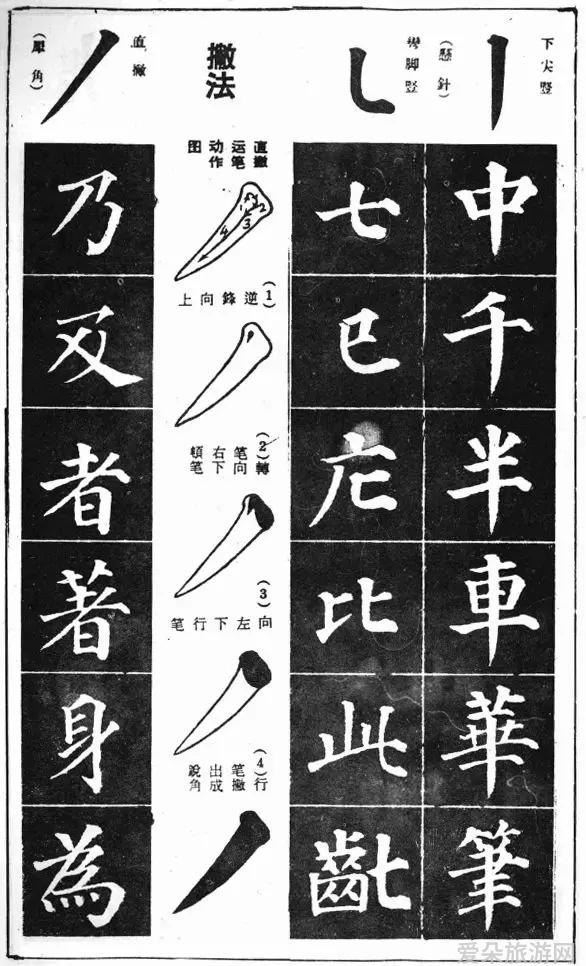 下尖豎
(懸針)
中
千
半
車
華
筆
彎脚豎
七
已
比
此
齔
撇法
直撇运笔动作图
1 2 3 4
(1)逆鋒向上
(2)轉笔向右下頓笔
(3)向左下行笔
(4)行笔撇出成銳角
直撇
(犀角)
乃
及
者
著
身
為
爱朵旅游网